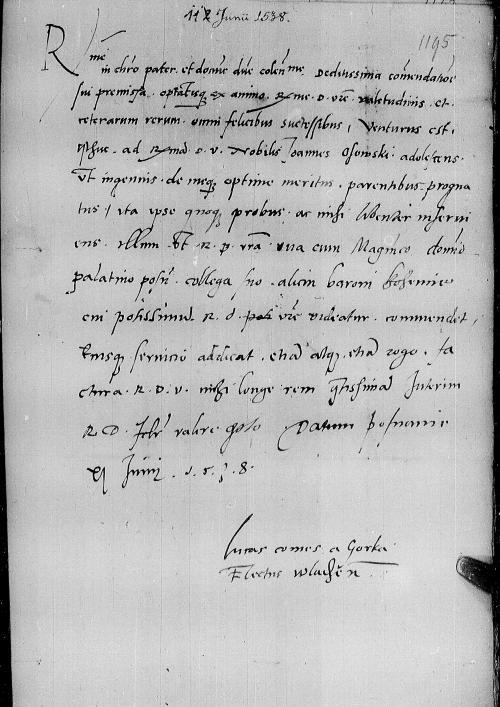 11 Junii 1538.
1195
R me
in chro pater et domine due coleñ me Deditissima comendatioe
sui premissa optatisq ex animo Rme D vre valetudinis et
ceterarum rerum omni felicibus successibus, Venturus est
isthuc ad Rmã D v Nobilis Joannes Osowski adolescens
Vt ingenuis de meq optime meritus parentibus progna
tus, ita ipse quoq probus ac mihi libenter inservi
ens illum Vt R p vra una cum Magnico domino
palatino posñ collega suo alicui baroni Bohemie
cui potissimũ R d vre videatur commendet,
Eiusq servicio addicat etiã atq etiã rogo fa
ctura R D v mihi longe rem gtissimã Interim
R D felr valere opto Datum posnanie
XI Junij 1538
Lucas comes a Gorka
Electus wladień